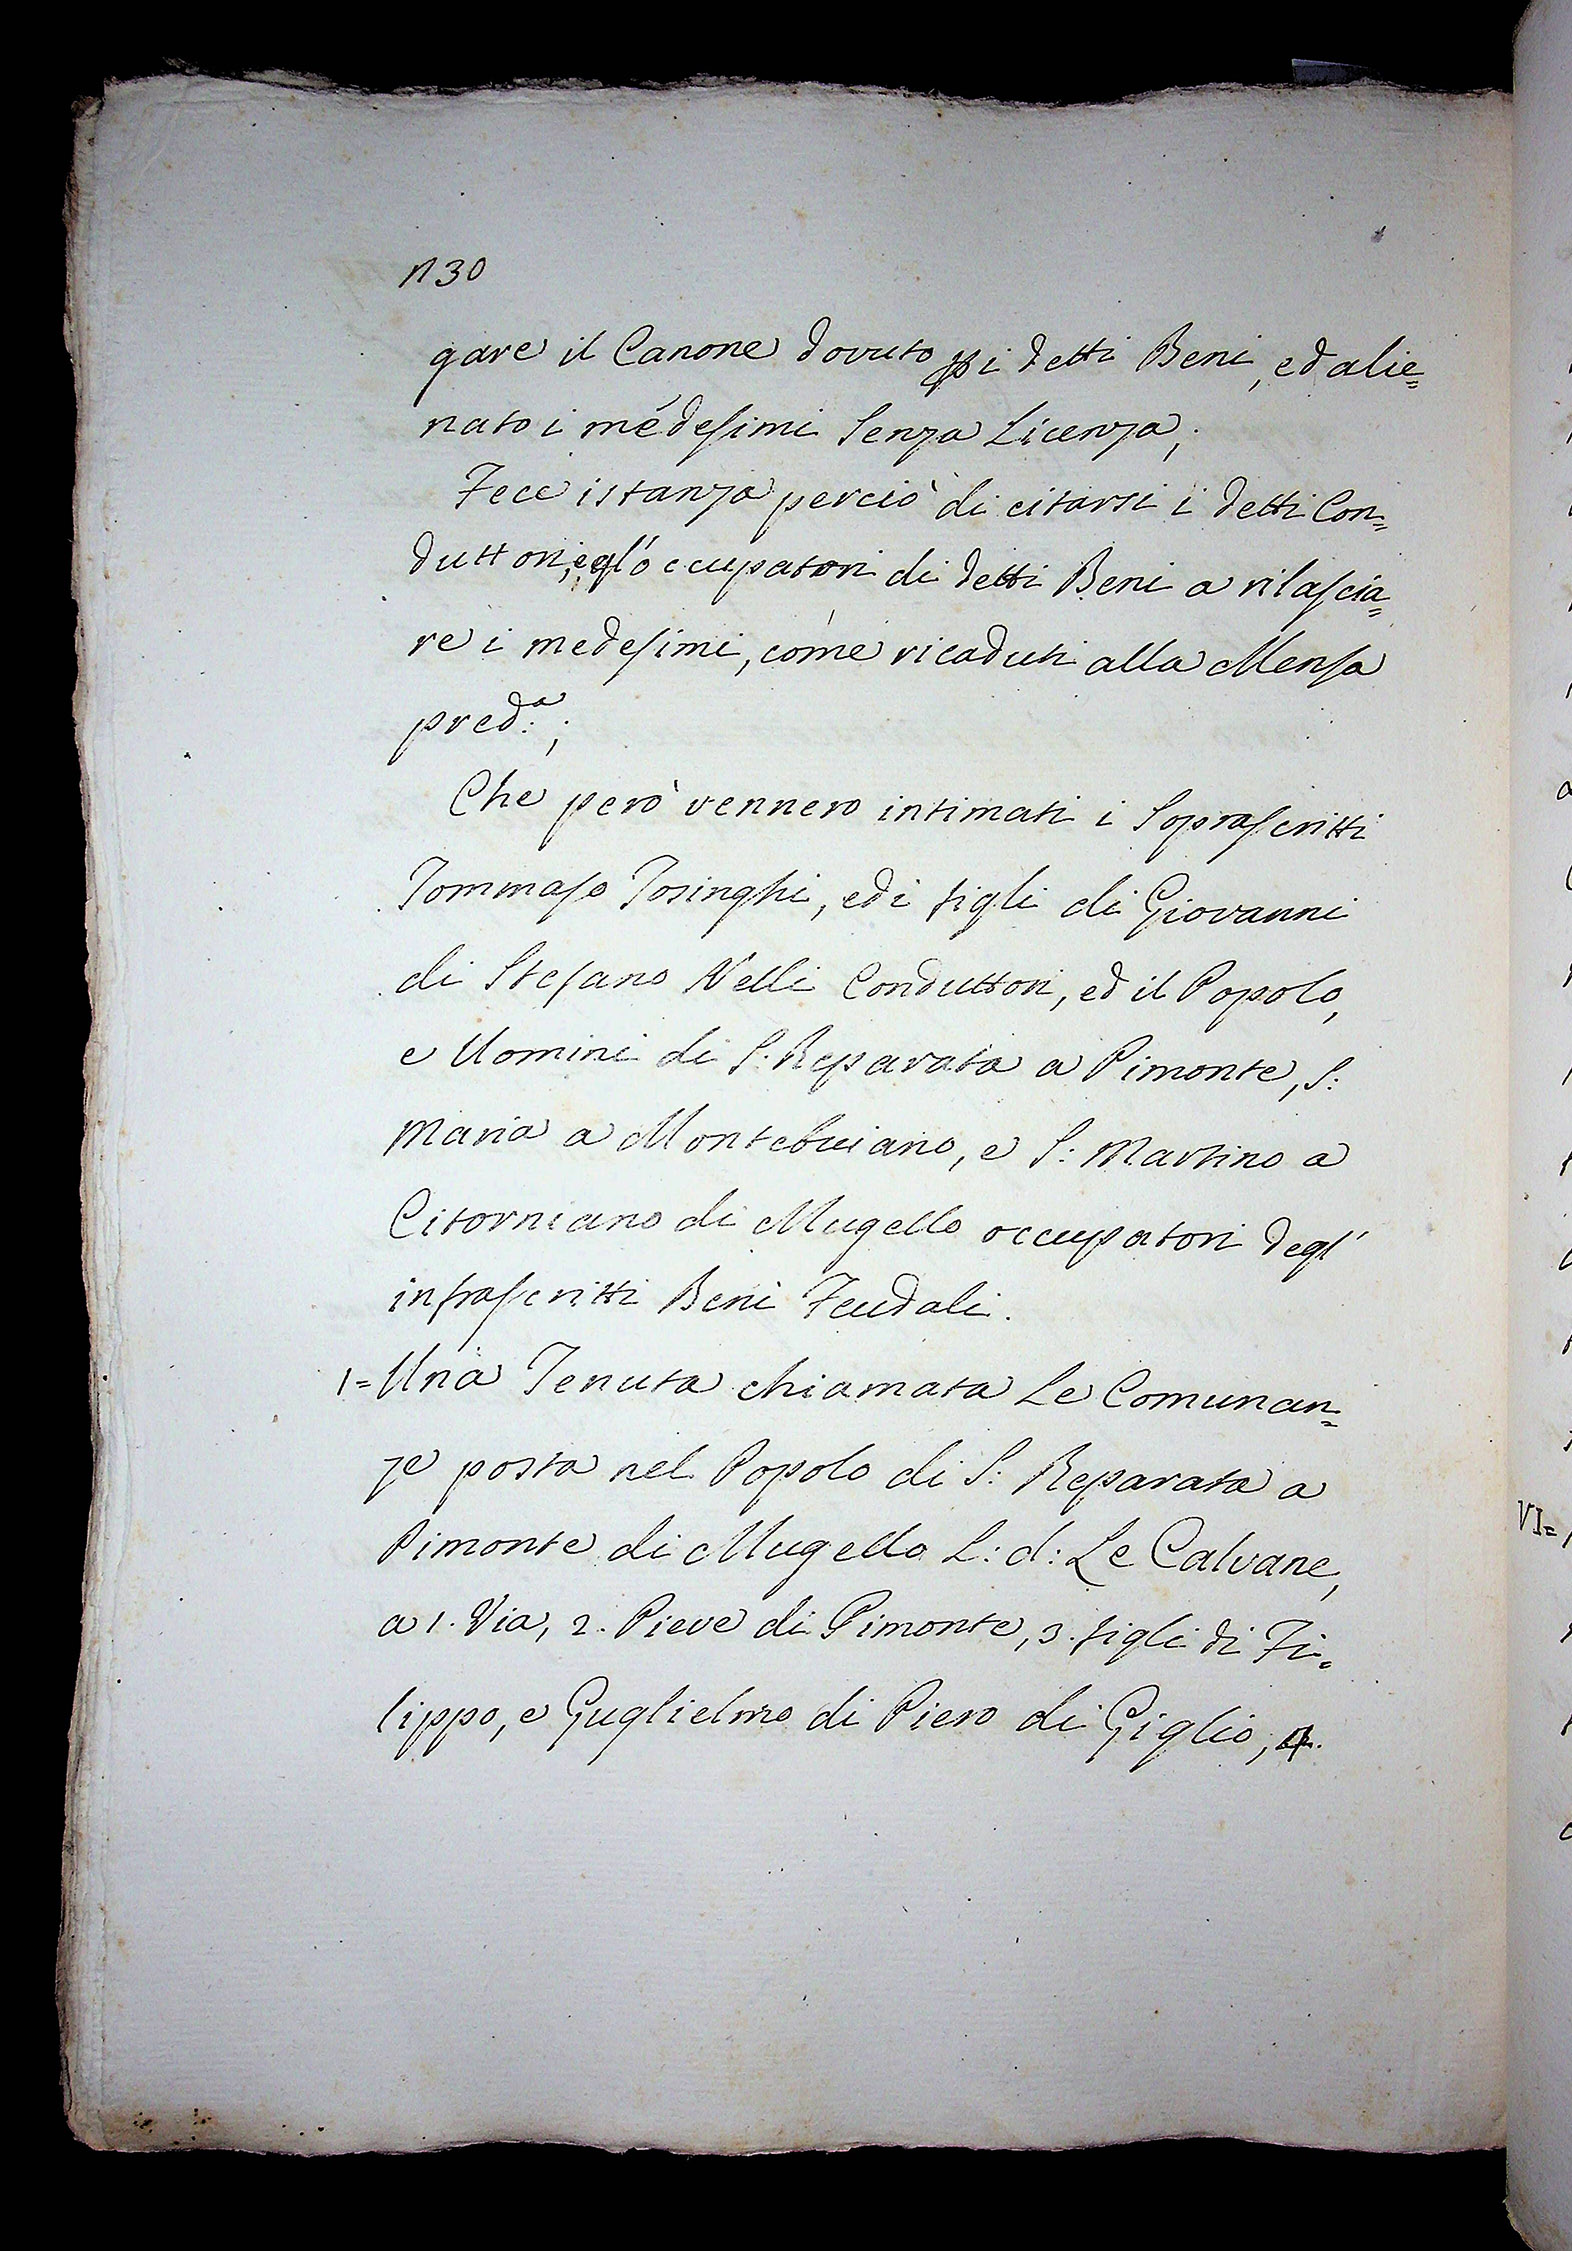 n 30
gare il Canone dovuto p i detti Beni, ed alie=
nato i medesimi Senza Licenza;
Fece istanza perciò di citarsi i detti Con=
duttori, e gl'occupatori di detti Beni a rilascia=
re i medesimi, come ricaduti alla Mensa
pred:ª;
Che però vennero intimati i Soprascritti
Tommaso Tosinghi, ed i figli di Giovanni
di Stefano Nelli Conduttori, ed il Popolo,
e Uomini di S. Reparata a Pimonte, S:
Maria a Montebuiano, e S: Martino a
Citorniano di Mugello occupatori degl'
infrascritti Beni Feudali.
1= Una Tenuta chiamata Le Comunan=
ze posta nel Popolo di S: Reparata a
Pimonte di Mugello L: d: Le Calvane,
a 1. Via, 2. Pieve di Pimonte, 3. figli di Fi=
lippo, e Guglielmo di Piero di Giglio, 4.
VI=